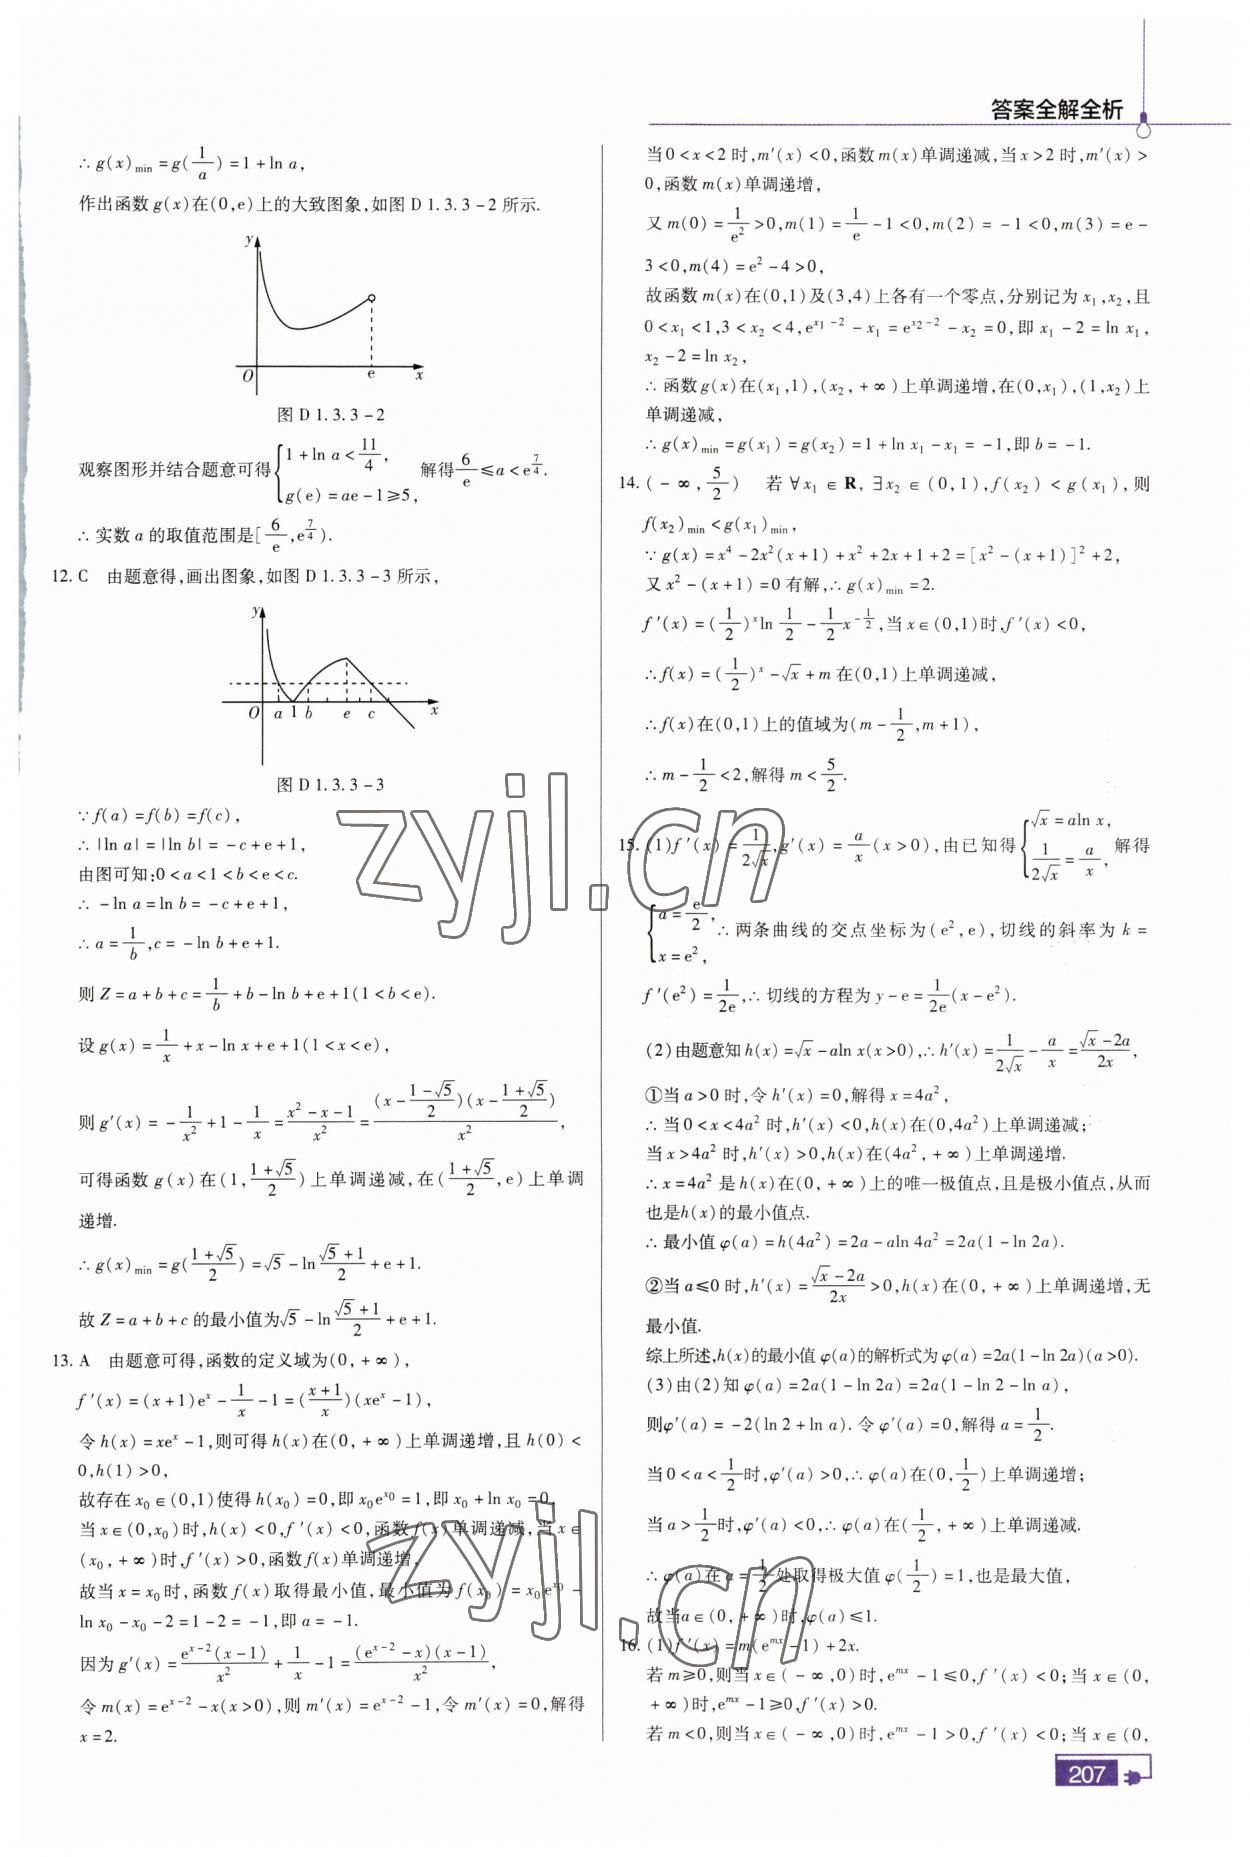 答案全解全析
∴ g(x)min = g(1/a) = 1 + ln a,
作出函数 g(x)在(0,e)上的大致图象,如图 D 1.3.3-2 所示.
y
O e x
图 D 1.3.3-2
观察图形并结合题意可得{1 + ln a < 11/4, g(e) = ae - 1 ≥ 5, 解得 6/e ≤ a < e^(7/4).
∴ 实数 a 的取值范围是[6/e, e^(7/4)).
12. C 由题意得,画出图象,如图 D 1.3.3-3 所示,
y
O a 1 b e c x
图 D 1.3.3-3
∵ f(a) = f(b) = f(c),
∴ |ln a| = |ln b| = -c + e + 1,
由图可知:0 < a < 1 < b < e < c.
∴ -ln a = ln b = -c + e + 1,
∴ a = 1/b, c = -ln b + e + 1.
则 Z = a + b + c = 1/b + b - ln b + e + 1(1 < b < e).
设 g(x) = 1/x + x - ln x + e + 1(1 < x < e),
则 g′(x) = -1/x² + 1 - 1/x = (x² - x - 1)/x² = (x - (1-√5)/2)(x - (1+√5)/2)/x²,
可得函数 g(x)在(1, (1+√5)/2)上单调递减,在((1+√5)/2, e)上单调
递增.
∴ g(x)min = g((1+√5)/2) = √5 - ln (√5+1)/2 + e + 1.
故 Z = a + b + c 的最小值为√5 - ln (√5+1)/2 + e + 1.
13. A 由题意可得,函数的定义域为(0, +∞),
f′(x) = (x+1)e^x - 1/x - 1 = ((x+1)/x)(xe^x - 1),
令 h(x) = xe^x - 1,则可得 h(x)在(0, +∞)上单调递增,且 h(0) <
0, h(1) > 0,
故存在 x₀∈(0,1)使得 h(x₀) = 0,即 x₀e^(x₀) = 1,即 x₀ + ln x₀ = 0,
当 x∈(0,x₀)时,h(x) < 0,f′(x) < 0,函数 f(x)单调递减,当 x∈
(x₀, +∞)时,f′(x) > 0,函数 f(x)单调递增,
故当 x = x₀ 时,函数 f(x)取得最小值,最小值为 f(x₀) = x₀e^(x₀) -
ln x₀ - x₀ - 2 = 1 - 2 = -1,即 a = -1.
因为 g′(x) = e^(x-2)(x-1)/x² + 1/x - 1 = (e^(x-2) - x)(x-1)/x²,
令 m(x) = e^(x-2) - x(x > 0),则 m′(x) = e^(x-2) - 1,令 m′(x) = 0,解得
x = 2.
当 0 < x < 2 时,m′(x) < 0,函数 m(x)单调递减,当 x > 2 时,m′(x) >
0,函数 m(x)单调递增,
又 m(0) = 1/e² > 0, m(1) = 1/e - 1 < 0, m(2) = -1 < 0, m(3) = e -
3 < 0, m(4) = e² - 4 > 0,
故函数 m(x)在(0,1)及(3,4)上各有一个零点,分别记为 x₁,x₂,且
0 < x₁ < 1, 3 < x₂ < 4, e^(x₁-2) - x₁ = e^(x₂-2) - x₂ = 0,即 x₁ - 2 = ln x₁,
x₂ - 2 = ln x₂,
∴ 函数 g(x)在(x₁,1),(x₂, +∞)上单调递增,在(0,x₁),(1,x₂)上
单调递减,
∴ g(x)min = g(x₁) = g(x₂) = 1 + ln x₁ - x₁ = -1,即 b = -1.
14. (-∞, 5/2) 若 ∀x₁∈R, ∃x₂∈(0,1), f(x₂) < g(x₁),则
f(x₂)min < g(x₁)min,
∵ g(x) = x⁴ - 2x²(x+1) + x² + 2x + 1 + 2 = [x² - (x+1)]² + 2,
又 x² - (x+1) = 0 有解,∴ g(x)min = 2.
f′(x) = (1/2)^x ln 1/2 - 1/2 x^(-1/2),当 x∈(0,1)时,f′(x) < 0,
∴ f(x) = (1/2)^x - √x + m 在(0,1)上单调递减,
∴ f(x)在(0,1)上的值域为(m - 1/2, m + 1),
∴ m - 1/2 < 2,解得 m < 5/2.
15. (1) f′(x) = 1/(2√x), g′(x) = a/x (x > 0),由已知得{√x = aln x, 1/(2√x) = a/x, 解得
{a = e/2, x = e², ∴ 两条曲线的交点坐标为(e²,e),切线的斜率为 k =
f′(e²) = 1/(2e),∴ 切线的方程为 y - e = 1/(2e) (x - e²).
(2)由题意知 h(x) = √x - aln x(x > 0),∴ h′(x) = 1/(2√x) - a/x = (√x - 2a)/(2x),
①当 a > 0 时,令 h′(x) = 0,解得 x = 4a²,
∴ 当 0 < x < 4a² 时,h′(x) < 0,h(x)在(0,4a²)上单调递减;
当 x > 4a² 时,h′(x) > 0,h(x)在(4a², +∞)上单调递增.
∴ x = 4a² 是 h(x)在(0, +∞)上的唯一极值点,且是极小值点,从而
也是h(x)的最小值点.
∴ 最小值 φ(a) = h(4a²) = 2a - aln 4a² = 2a(1 - ln 2a).
②当 a ≤ 0 时,h′(x) = (√x - 2a)/(2x) > 0,h(x)在(0, +∞)上单调递增,无
最小值.
综上所述,h(x)的最小值 φ(a)的解析式为 φ(a) = 2a(1 - ln 2a)(a > 0).
(3)由(2)知 φ(a) = 2a(1 - ln 2a) = 2a(1 - ln 2 - ln a),
则φ′(a) = -2(ln 2 + ln a).令 φ′(a) = 0,解得 a = 1/2.
当 0 < a < 1/2 时,φ′(a) > 0,∴ φ(a)在(0, 1/2)上单调递增;
当 a > 1/2 时,φ′(a) < 0,∴ φ(a)在(1/2, +∞)上单调递减.
∴ φ(a)在 a = 1/2 处取得极大值 φ(1/2) = 1,也是最大值,
故当a∈(0, +∞)时,φ(a) ≤ 1.
16. (1) f′(x) = m(e^(mx) - 1) + 2x.
若 m ≥ 0,则当 x∈(-∞,0)时,e^(mx) - 1 ≤ 0,f′(x) < 0;当 x∈(0,
+∞)时,e^(mx) - 1 ≥ 0,f′(x) > 0.
若 m < 0,则当 x∈(-∞,0)时,e^(mx) - 1 > 0,f′(x) < 0;当 x∈(0,
207
zyjl.cn
zyjl.cn